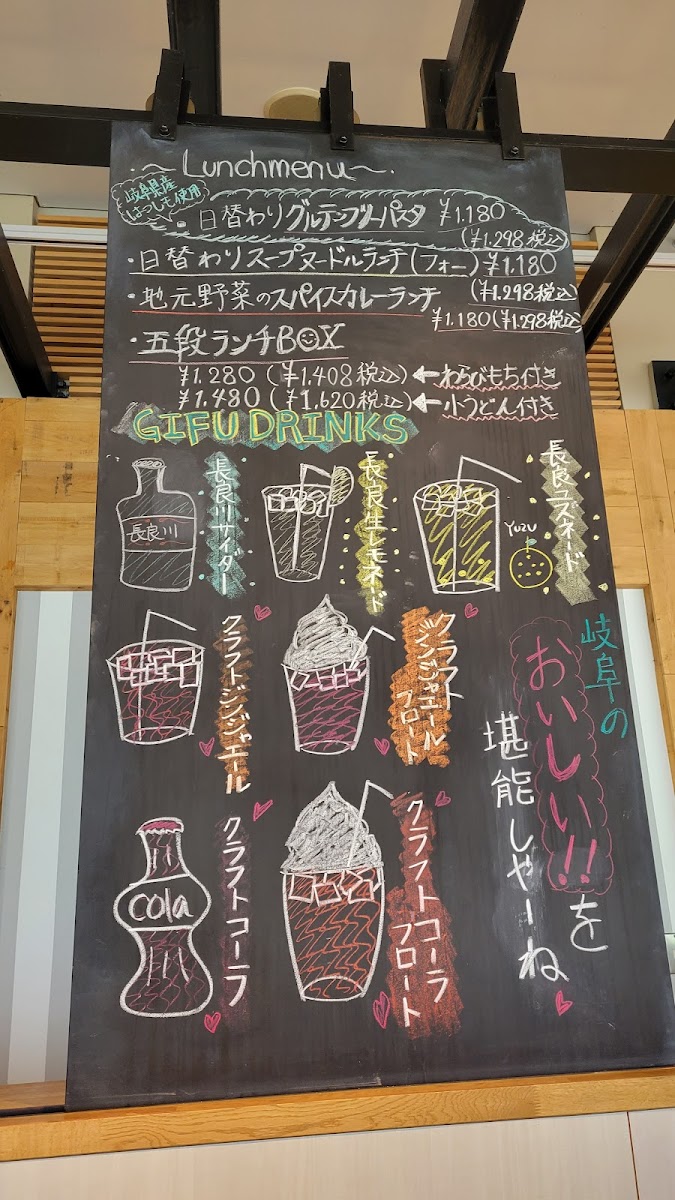 ~Lunchmenu~.
岐阜県産
はつしも使用
・日替わりグルテンフリーパスタ ¥1.180
(¥1.298税込)
・日替わりスープヌードルランチ(フォー) ¥1.180
(¥1.298税込)
・地元野菜のスパイスカレーランチ
¥1.180(¥1.298税込)
・五段ランチBOX
¥1.280(¥1.408税込)←わらびもち付き
¥1.480(¥1.620税込)←小うどん付き
GIFU DRINKS
長良川
長良川サイダー
長良生レモネード
YUZU
長良ユズネード
クラフトジンジャエール
クラフト
ジンジャエール
フロート
cola
クラフトコーラ
クラフトコーラ
フロート
岐阜の
おいしい!!を
堪能しやーね